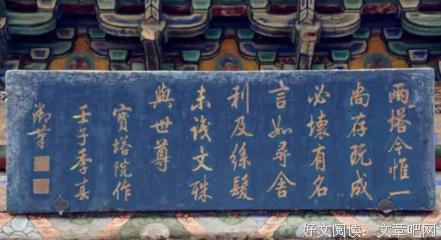 兩塔今惟一
尚存既成
必壞有名
言如尋舍
利及絲髮
未識文殊
與世尊
寶塔院作
壬子季春
御筆
好文阅读：文章吧网